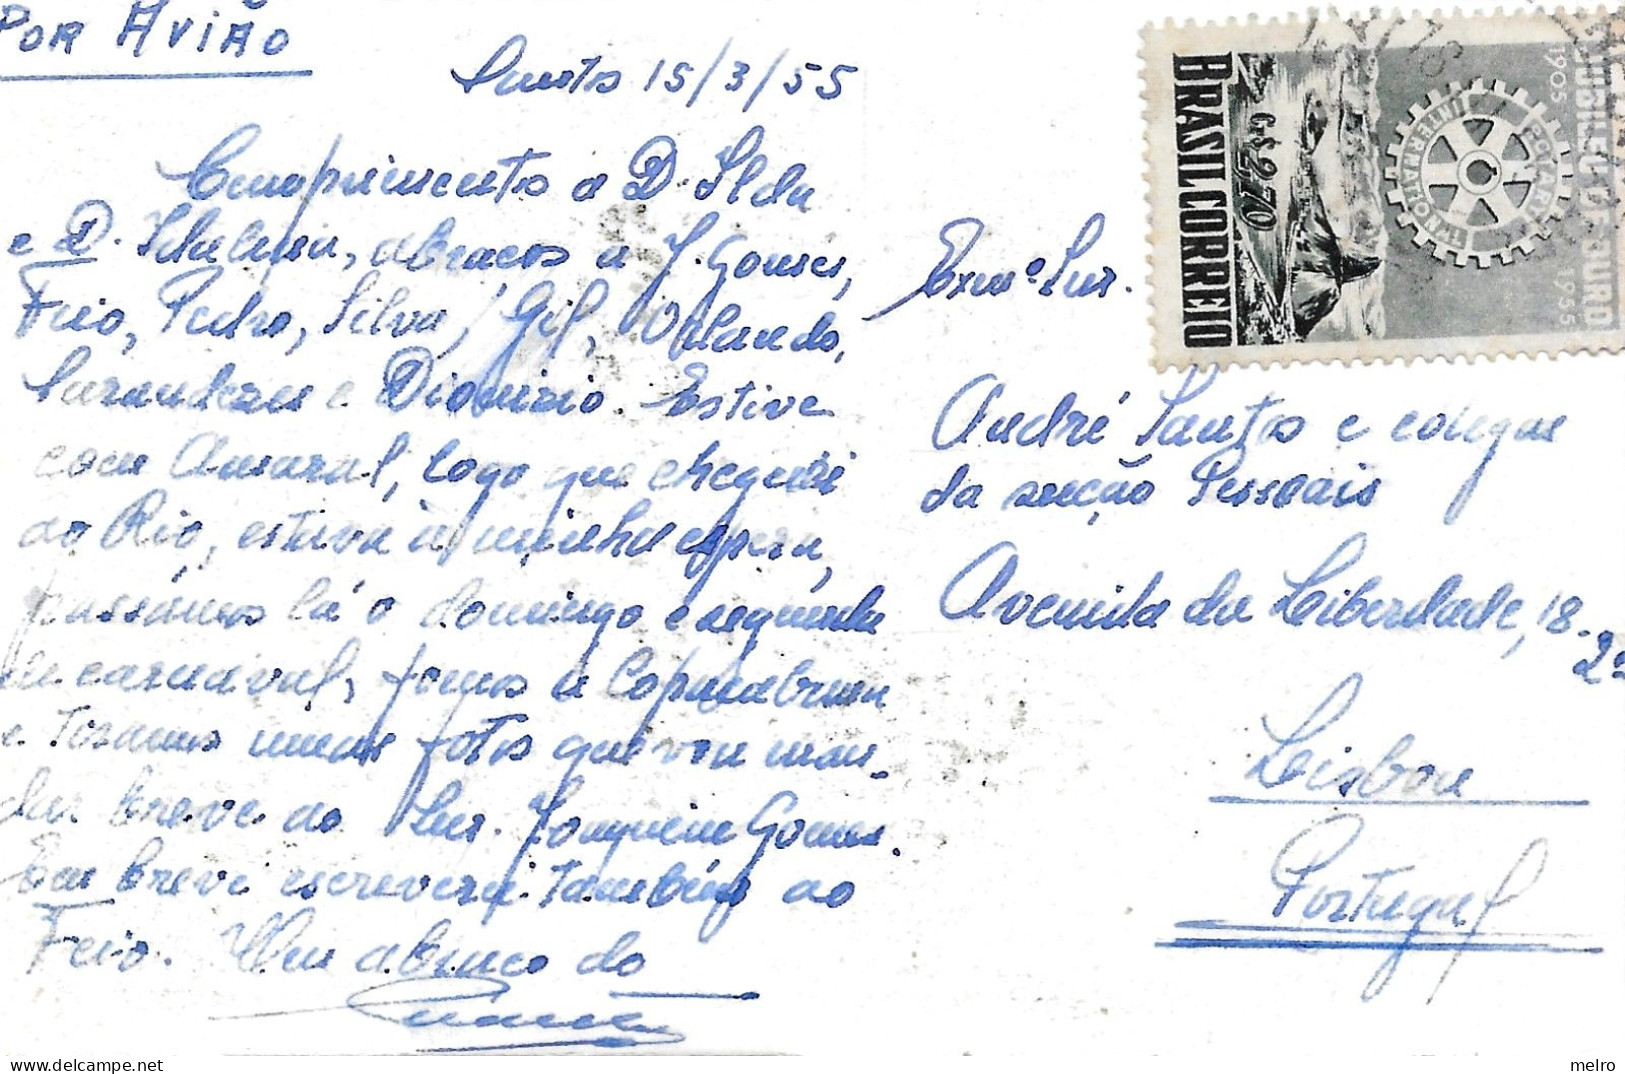 POR AVIÃO
Santos 15/3/55
Cumprimentos a D. Ilda
e D. abraços a J. Gomes,
Feio, Pedro, Silva, Gil, Orlando,
e Dionizio. Estive
com Amaral, logo que cheguei
ao Rio, estava à minha espera,
passámos lá o domingo e segunda
de carnaval, fomos a Copacabana
e tirámos umas fotos que vou man-
dar breve ao Snr. Joaquim Gomes.
Em breve escreverei também ao
Feio. Um abraço do
Exmo Snr.
André Santos e colegas
da secção Pessoais
Avenida da Liberdade, 18-
2º
Lisboa
Portugal
BRASIL CORREIO
Cr$ 2,70
ROTARY INTERNATIONAL
1905 JUBILEU DE OURO 1955
melro